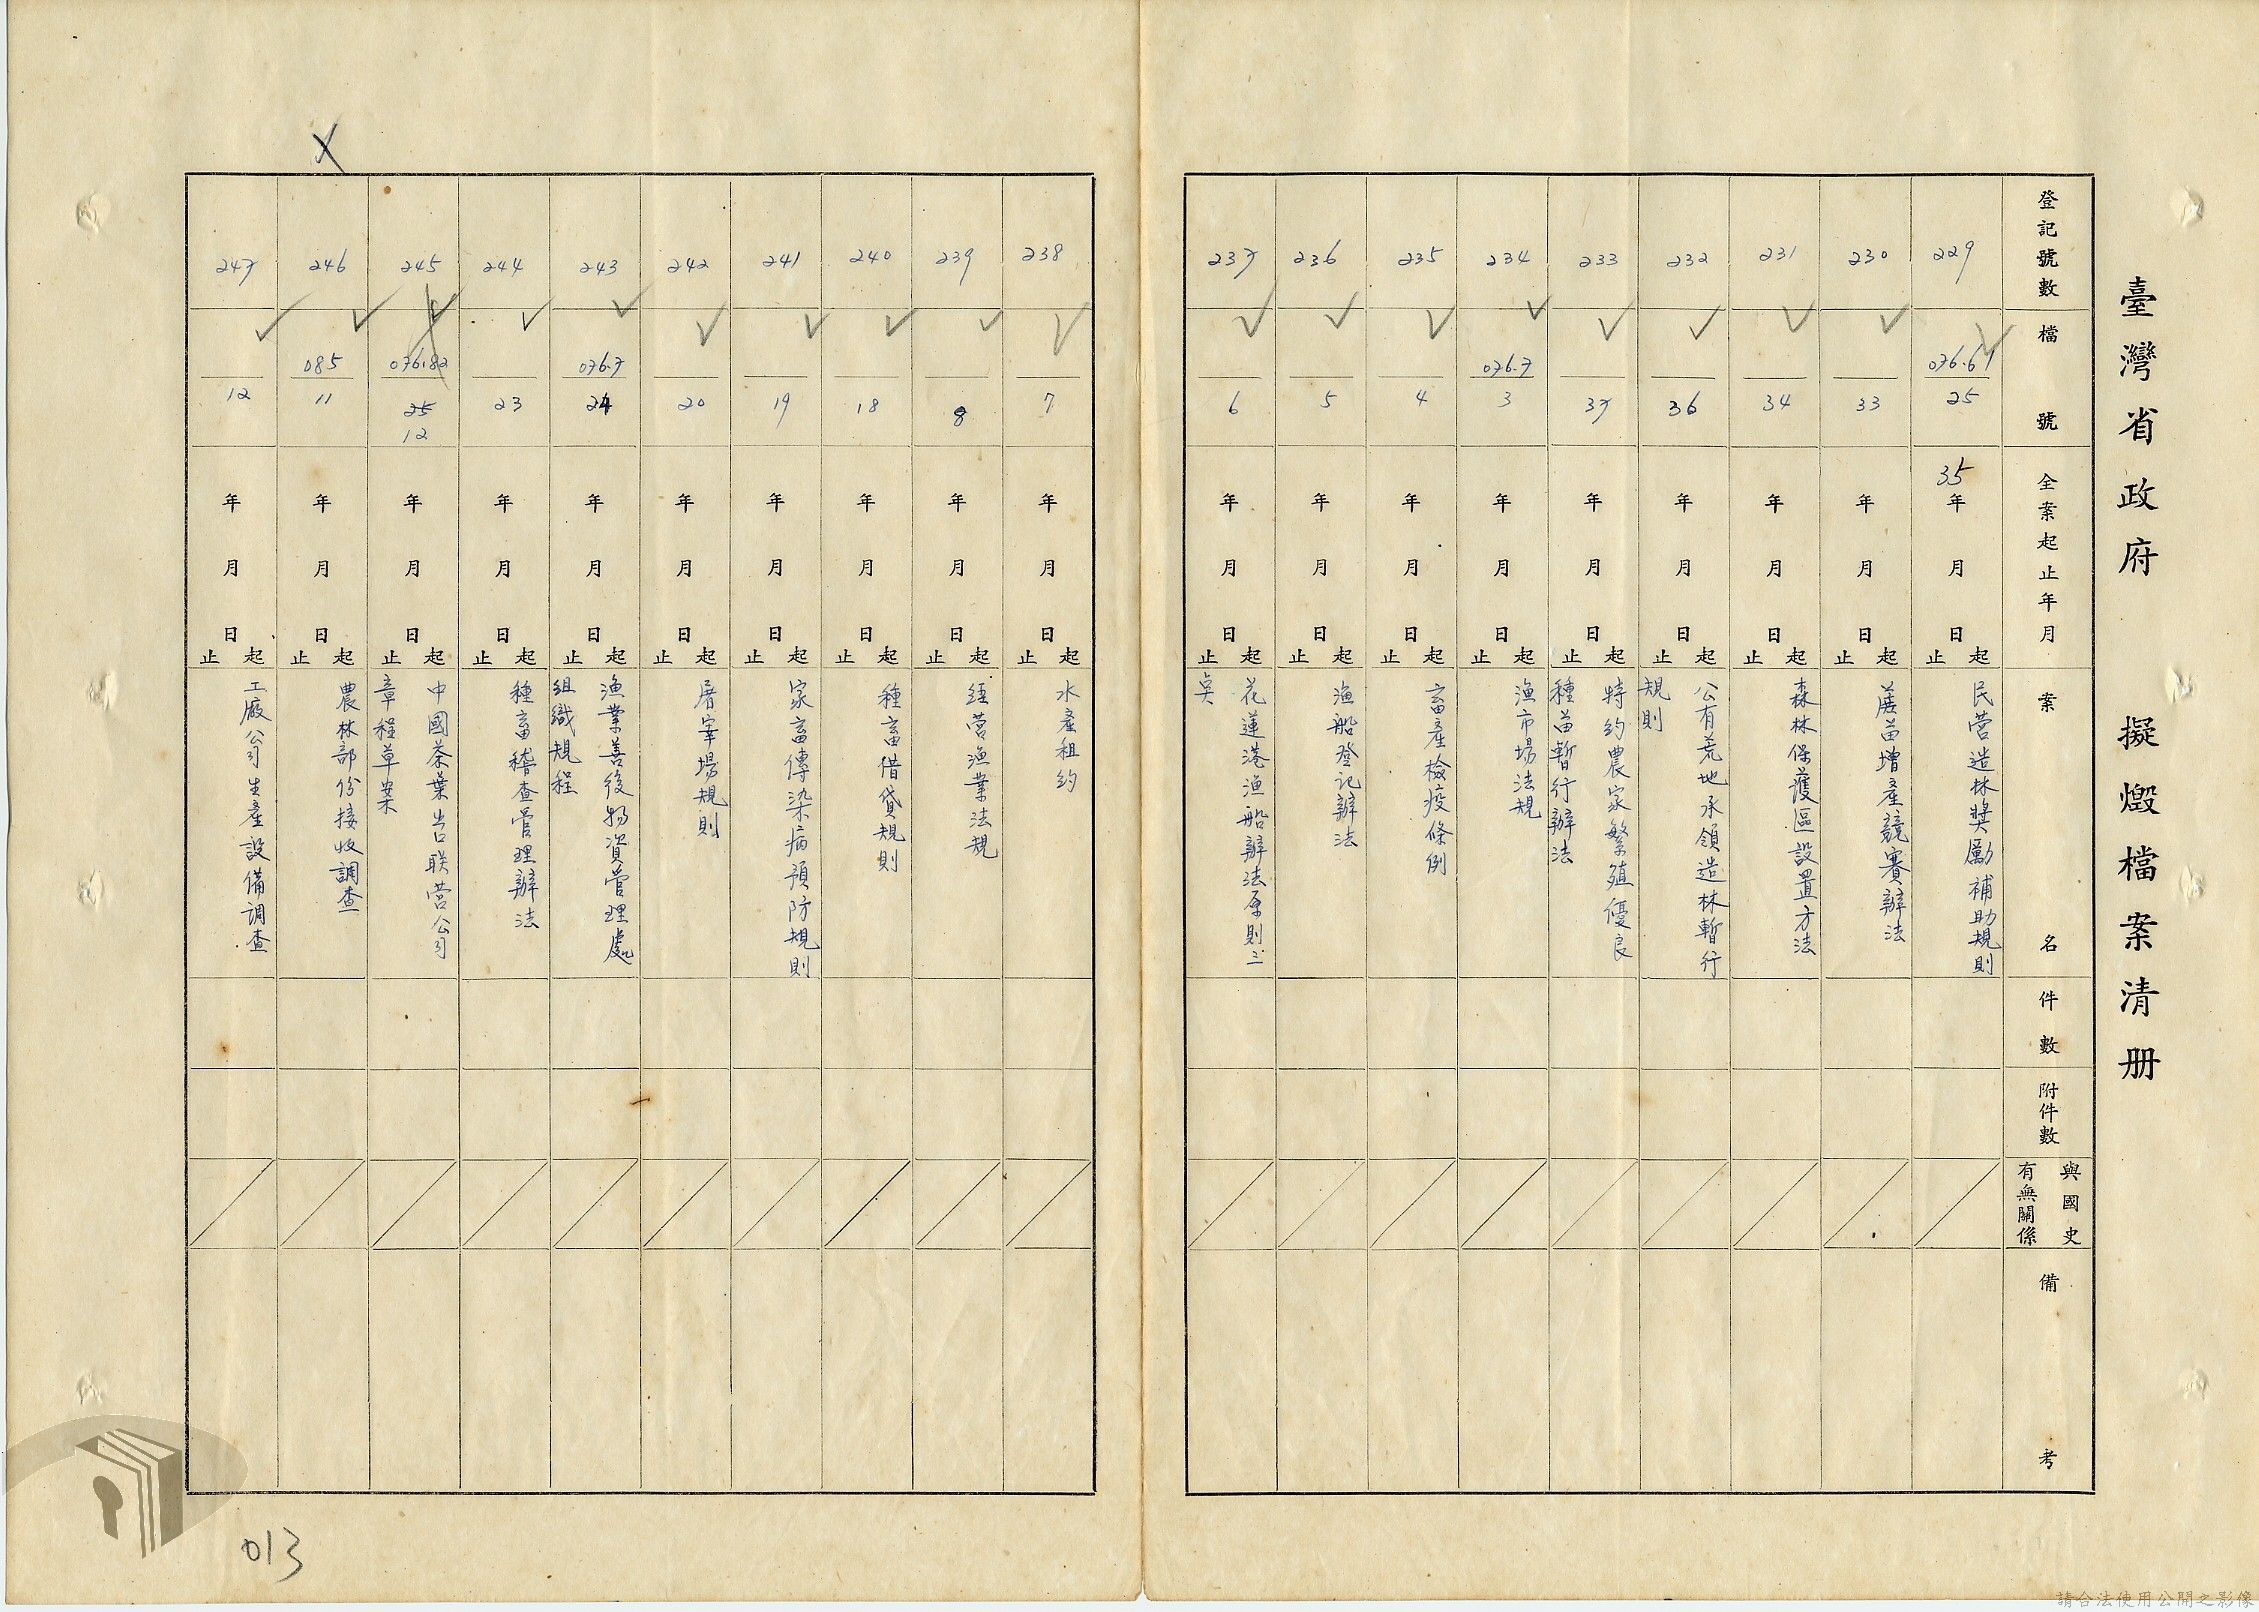 臺灣省政府 擬燬檔案清册
登記號數
檔號
全案起止年月
案名
件數
附件數
與國史
有無關係
備考
229
076.61
25
35
年月日
起
止
民营造林獎勵補助規則
230
33
年月日
起
止
蔗苗增產競賽辦法
231
34
年月日
起
止
森林保護區設置方法
232
36
年月日
起
止
公有荒地承領造林暫行
規則
233
37
年月日
起
止
特約農家繁殖優良
種苗暫行辦法
234
076.7
3
年月日
起
止
漁市場法規
235
4
年月日
起
止
畜產檢疫條例
236
5
年月日
起
止
漁船登記辦法
237
6
年月日
起
止
花蓮港漁船辦法原則
238
7
年月日
起
止
水產租約
239
8
年月日
起
止
經营漁業法規
240
18
年月日
起
止
種畜借貸規則
241
19
年月日
起
止
家畜傳染病預防規則
242
20
年月日
起
止
屠宰場規則
243
076.7
24
年月日
起
止
漁業善後物資管理處
組織規程
244
23
年月日
起
止
種畜稽查管理辦法
245
076.82
25
12
年月日
起
止
中國茶葉出口联营公司
章程草案
246
085
11
年月日
起
止
農林部份接收調查
247
12
年月日
起
止
工廠公司生產設備調查
013
請合法使用公開之影像